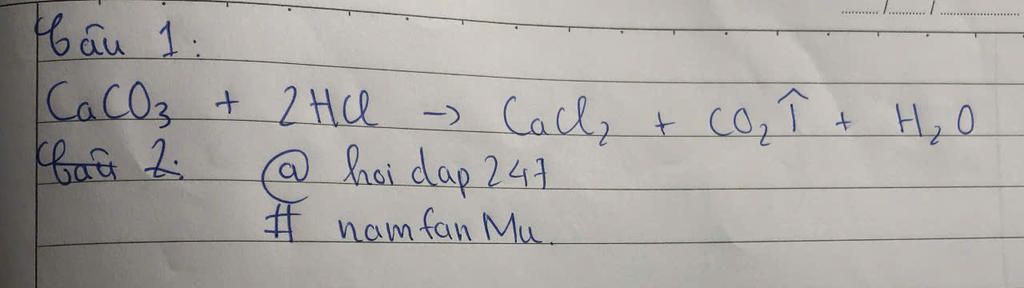 Câu 1:
CaCO3 + 2HCl -> CaCl2 + CO2↑ + H2O
Câu 2. @ hoi dap 247
# namfanMu.